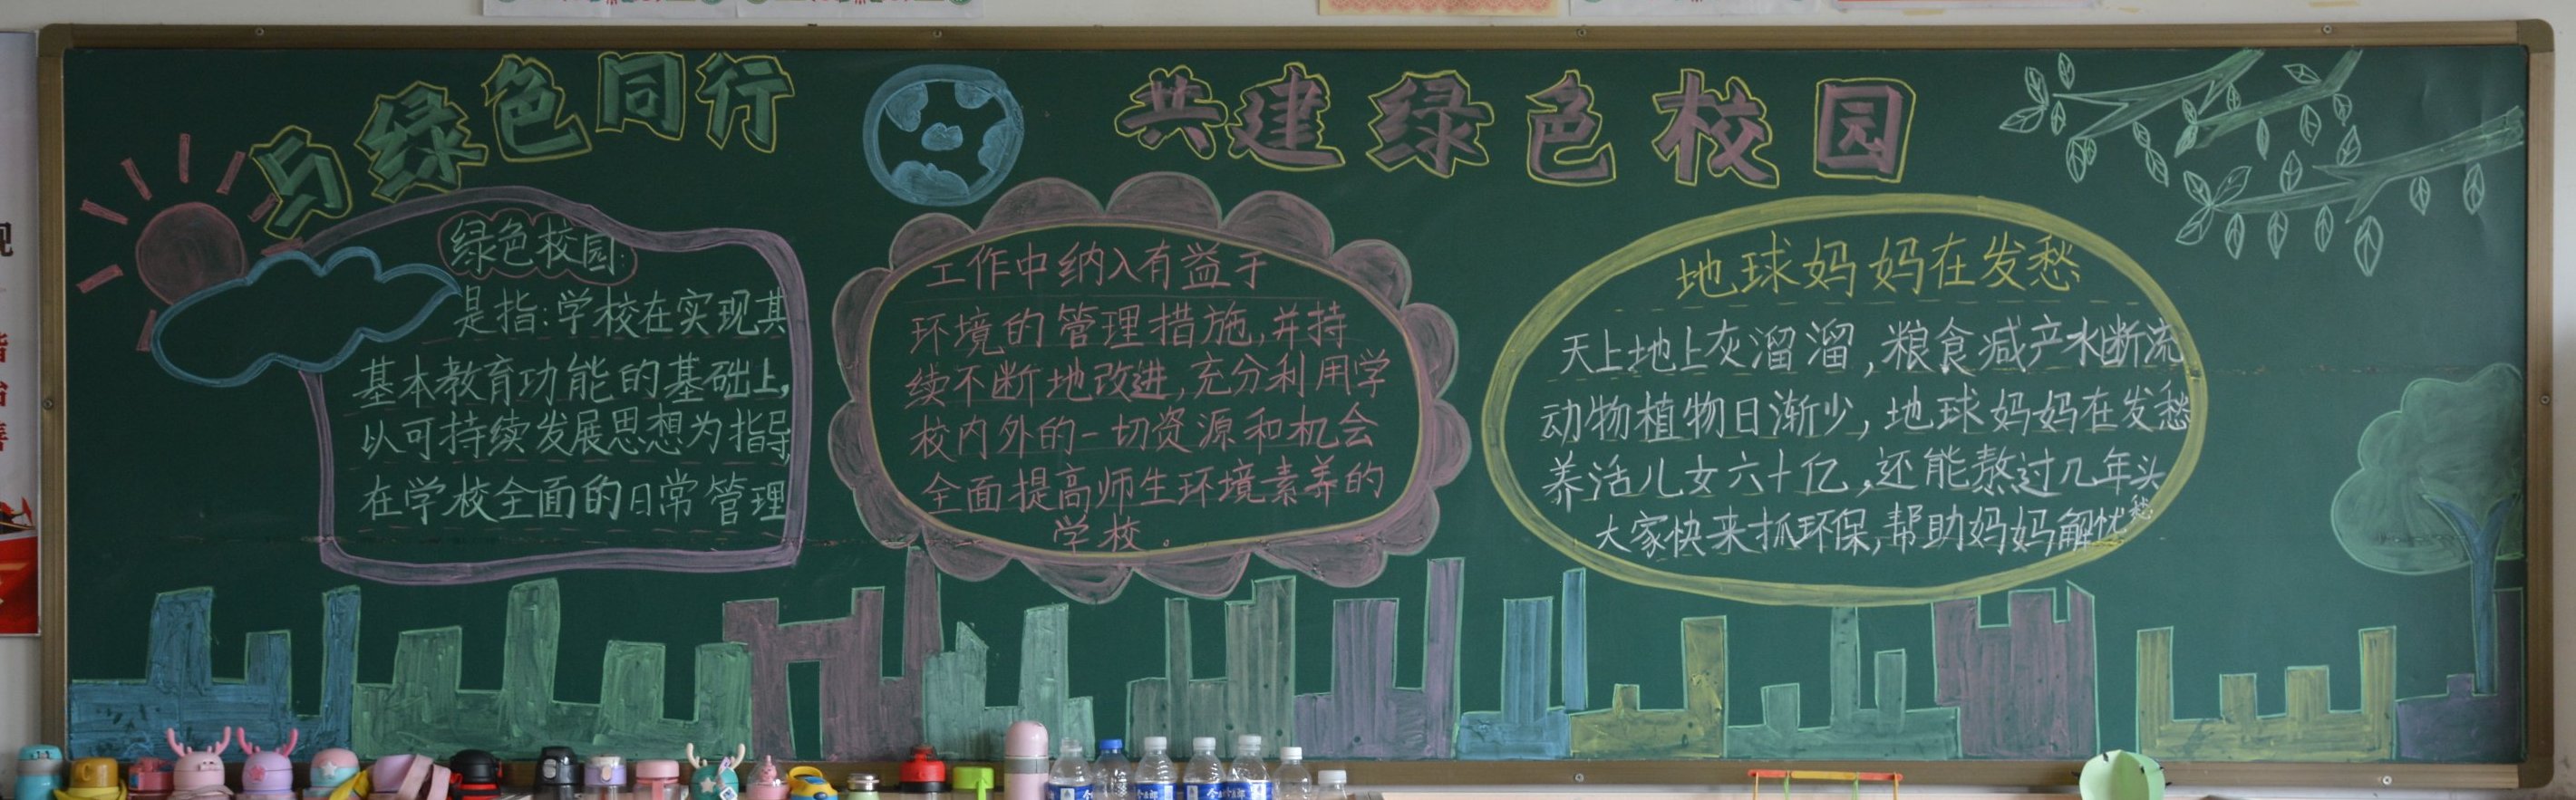 与绿色同行
共建绿色校园
绿色校园:
是指:学校在实现其
基本教育功能的基础上,
以可持续发展思想为指导,
在学校全面的日常管理
工作中纳入有益于
环境的管理措施,并持
续不断地改进,充分利用学
校内外的一切资源和机会
全面提高师生环境素养的
学校。
地球妈妈在发愁
天上地上灰溜溜,粮食减产水断流
动物植物日渐少,地球妈妈在发愁
养活儿女六十亿,还能熬过几年头
大家快来抓环保,帮助妈妈解忧愁